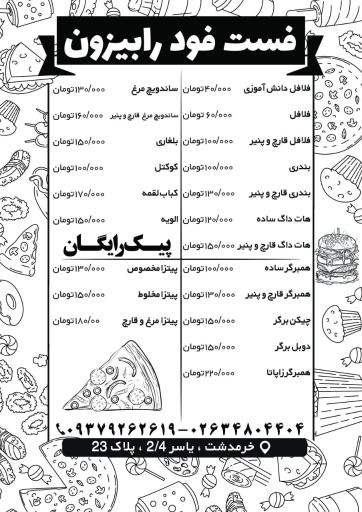 فست فود رابیزون
فلافل دانش آموزی ۴۰/۰۰۰تومان
فلافل ۶۰/۰۰۰تومان
فلافل قارچ و پنیر ۱۰۰/۰۰۰تومان
بندری ۱۰۰/۰۰۰تومان
بندری قارچ و پنیر ۱۳۰/۰۰۰تومان
هات داگ ساده ۱۲۰/۰۰۰تومان
هات داگ قارچ و پنیر ۱۵۰/۰۰۰تومان
همبرگر ساده ۱۰۰/۰۰۰تومان
همبرگر قارچ و پنیر ۱۳۰/۰۰۰تومان
چیکن برگر ۱۵۰/۰۰۰تومان
دوبل برگر ۱۵۰/۰۰۰تومان
همبرگر زاپاتا ۲۲۰/۰۰۰تومان
ساندویچ مرغ ۱۳۰/۰۰۰تومان
ساندویچ مرغ قارچ و پنیر ۱۶۰/۰۰۰تومان
بلغاری ۱۵۰/۰۰۰تومان
کوکتل ۱۰۰/۰۰۰تومان
کباب لقمه ۱۷۰/۰۰۰تومان
الویه ۱۵۰/۰۰۰تومان
پیک رایگان
پیتزا مخصوص ۱۳۰/۰۰۰تومان
پیتزا مخلوط ۱۵۰/۰۰۰تومان
پیتزا مرغ و قارچ ۱۸۰/۰۰تومان
۰۹۳۷۹۲۶۲۶۱۹-۰۲۶۳۴۸۰۴۴۰۴
خرمدشت ، یاسر 2/4 ، پلاک 23